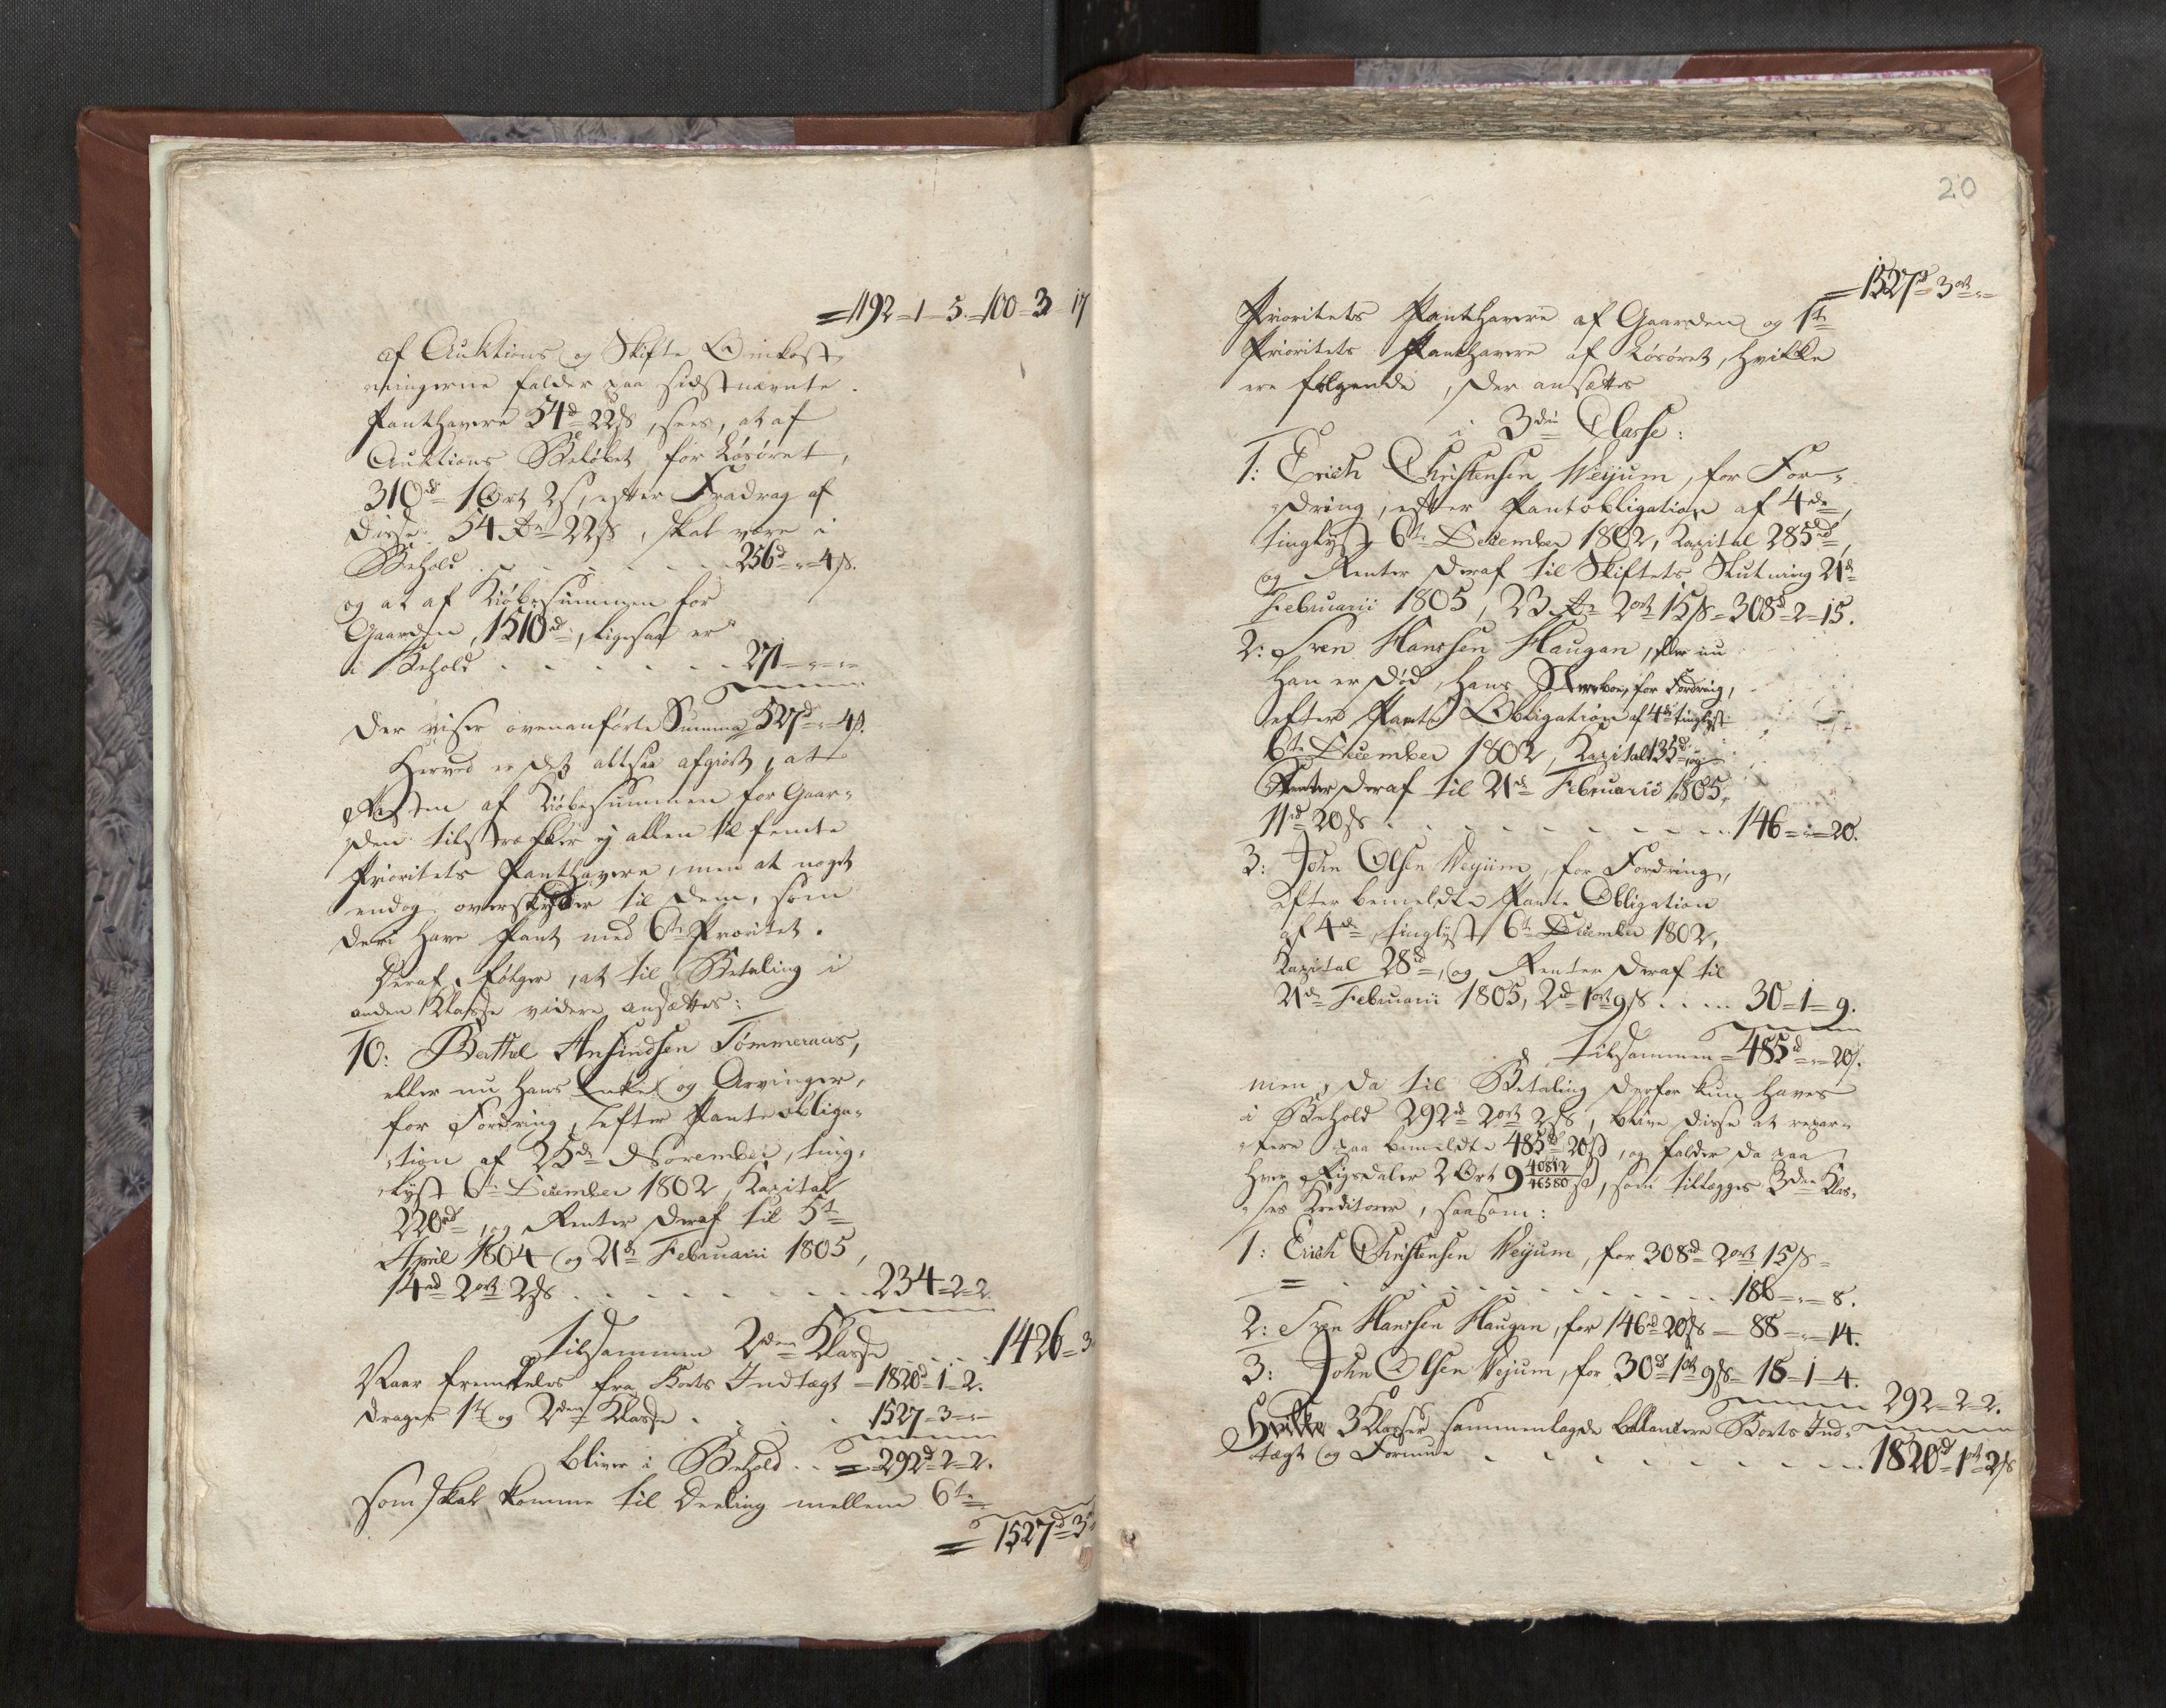 =1192-1-5.-100-3-17
af Auktions og Skifte Omkost-
ningerne falder paa sidstnævnte
Panthavere 54d 22s, sees, at af
Auktions Beløbet for Løsøret,
310d 1 Ort 2s, efter Fradrag af
disse 54 d 22s, skal være i
Behold . . . . . 256d-"-4s.
og at af Kiøbesummen for
Gaarden, 1510rd, ligesaa er
i Behold . . . . . . 271-"-"
der viser ovenanførte Summa 527d-"-4s.
Herved er det altsaa afgiort, at
Resten af Kiøbesummen for Gaar-
den tilstrækker ej alleen til femte
Prioritets Panthavere, men at noget
endog overskyder til dem, som
deri have Pant med 6te Prioritet.
Deraf følger, at til Betaling i
anden Klasse videre ansættes:
10: Berthel Ansindsen Tømmeraas,
eller nu hans Enke og Arvinger,
for Fordring, efter Panteobliga-
tion af 25de November, ting-
lyst 6te December 1802, Kapital
220rd, og Renter deraf til 5te
April 1804 og 21de Februarii 1805,
14rd 2ort 2s . . . . . . 234-2-2.
tilsammen 2den Klasse . . . 1426-3-
Naar fremdeles fra Boets Indtægt = 1820d-1-2.
drages 1ste og 2den Klasse . . . . 1527-3-"-
bliver i Behold . . = 292d-2-2.
som skal komme til Deeling mellem 6te
= 1527d-3
20
= 1527d-3ort-"-
Prioritets Panthavere af Gaarden og 1ste
Prioritets Panthavere af Løsøret, hvilke
ere følgende, der ansættes
i 3die Classe:
1: Erich Christensen Wejum, for For-
dring, efter Pantobligation af 4de,
tinglyst 6te December 1802, Kapital 285rd,
og Renter deraf til Skiftets Slutning 21de
Februarii 1805, 23 d 2ort 15s = 308d-2-15.
2: Sven Hanssen Haugan, eller nu
han er død, hans Sterboe, for Fordring,
efter Pante Obligation af 4de tinglyst
6te December 1802, Kapital 135d, og
Renter deraf til 21de Februarii 1805,
11rd 20s . . . . . . . . . 146-"-20.
3: John Olsen Wejum, for Fordring,
efter bemeldte Pante Obligation
af 4de, tinglyst 6te December 1802,
Kapital 28rd, og Renter deraf til
21de Februarii 1805, 2d 1ort 9s . . . . 30-1-9.
tilsammen = 485d-"-20s.
men, da til Betaling derfor kun haves
i Behold 292rd 2ort 2s, blive disse at repar-
tere paa bemeldte 485rd 20s, og falder da paa
hver Rigsdaler 2 Ort 9 40812/46580 s, som tillægges 3die Klas-
ses Kreditorer, saasom:
1: Erich Christensen Wejum, for 308d 2ort 15s
= . . . . . . . . . . 186-"-8.
2: Sven Hanssen Haugan, for 146d 20s - 88-"-14.
3: John Olsen Wejum, for 30d 1ort 9s - 18-1-4.
292-2-2.
Hvilke 3 Klasser sammenlagde ballancere Boets Ind-
tægt og Formue . . . . . . . . 1820d-1ort-2s